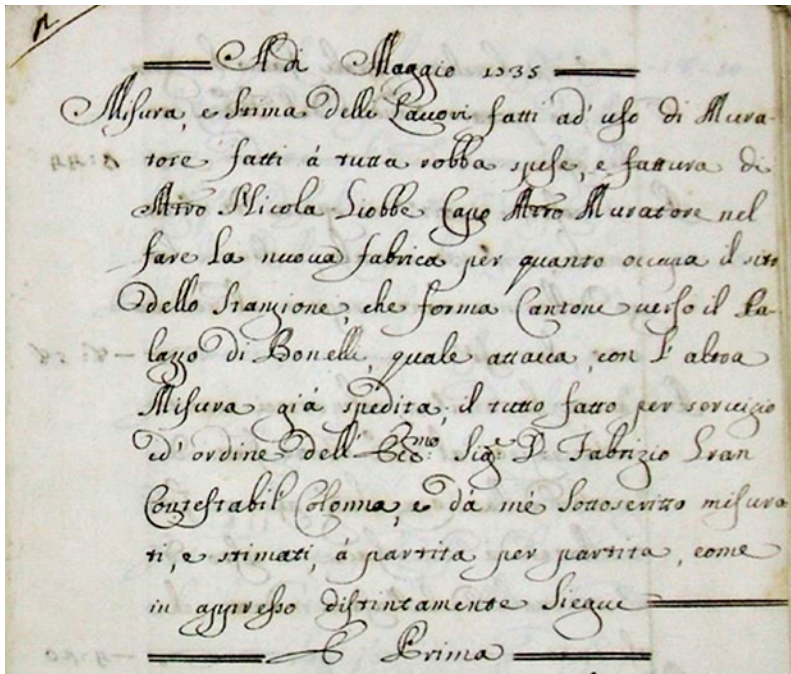 A di Maggio 1735
Misura, e Stima delli Lavori fatti ad' uso di Mura-
tore fatti á tutta robba spese, e fattura di
Mro Nicola Giobbe Capo Mro Muratore nel
fare La nuova fabrica per quanto occupa il sito
dello Stanzione, che forma Cantone verso il Pa-
lazzo di Bonelli, quale attacca, con l' altra
Misura giá spedita; il tutto fatto per servizio
ed' ordine dell' Ecc.mo Sig.r D. Fabrizio Gran
Contestabil' Colonna, e dá mé Sottoscritto misura
ti, e stimati, á partita per partita, come
in appresso distintamente Siegue
E Prima